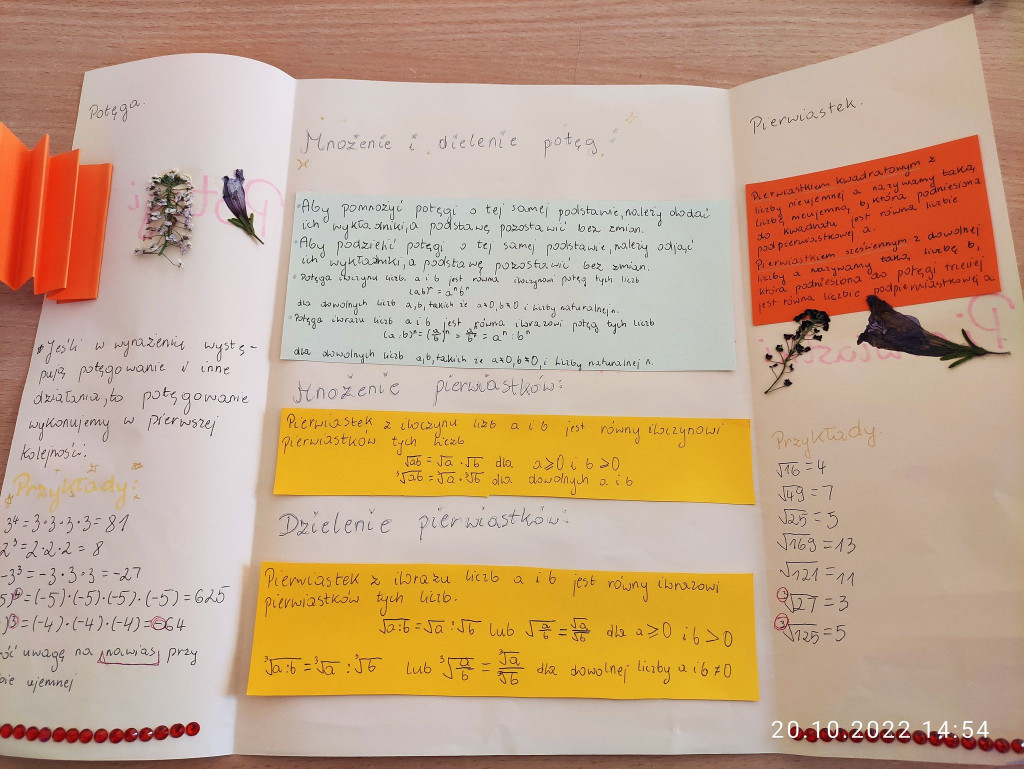 Potęga.
Potęgi
Jeśli w wyrażeniu wystę-
pują potęgowanie i inne
działania, to potęgowanie
wykonujemy w pierwszej
kolejności.
Przykłady:
3⁴ = 3·3·3·3 = 81
2³ = 2·2·2 = 8
-3³ = -3·3·3 = -27
5)⁴ = (-5)·(-5)·(-5)·(-5) = 625
)³ = (-4)·(-4)·(-4) = -64
uwagę na nawias przy
ujemnej
Mnożenie i dielenie potęg
Aby pomnożyć potęgi o tej samej podstawie, należy dodać
ich wykładniki, a podstawę pozostawić bez zmian.
Aby podzielić potęgi o tej samej podstawie, należy odjąć
ich wykładniki, a podstawę pozostawić bez zmian.
Potęga iloczynu liczb a i b jest równa iloczynowi potęg tych liczb
(ab)ⁿ = aⁿbⁿ
dla dowolnych liczb a, b, takich że a≠0, b≠0 i liczby naturalnej n.
Potęga ilorazu liczb a i b jest równa ilorazowi potęg tych liczb
(a:b)ⁿ = (a/b)ⁿ = aⁿ/bⁿ = aⁿ : bⁿ
dla dowolnych liczb a, b, takich że a≠0, b≠0, i liczby naturalnej n.
Mnożenie pierwiastków:
Pierwiastek z iloczynu liczb a i b jest równy iloczynowi
pierwiastków tych liczb
√ab = √a · √b dla a⩾0 i b>0
³√ab = ³√a · ³√b dla dowolnych a i b
Dzielenie pierwiastków:
Pierwiastek z ilorazu liczb a i b jest równy ilorazowi
pierwiastków tych liczb.
√a:b = √a : √b lub √a/b = √a/√b dla a⩾0 i b>0
³√a:b = ³√a : ³√b lub ³√a/b = ³√a/³√b dla dowolnej liczby a i b≠0
Pierwiastek.
Pierwiastkiem kwadratowym z
liczby nieujemnej a nazywamy taką
liczbę nieujemną b, która podniesiona
do kwadratu jest równa liczbie
podpierwiastkowej a.
Pierwiastkiem sześciennym z dowolnej
liczby a nazywamy taką liczbę b,
która podniesiona do potęgi trzeciej
jest równa liczbie podpierwiastkowej a
Przykłady
√16 = 4
√49 = 7
√25 = 5
√169 = 13
√121 = 11
³√27 = 3
³√125 = 5
20.10.2022 14:54